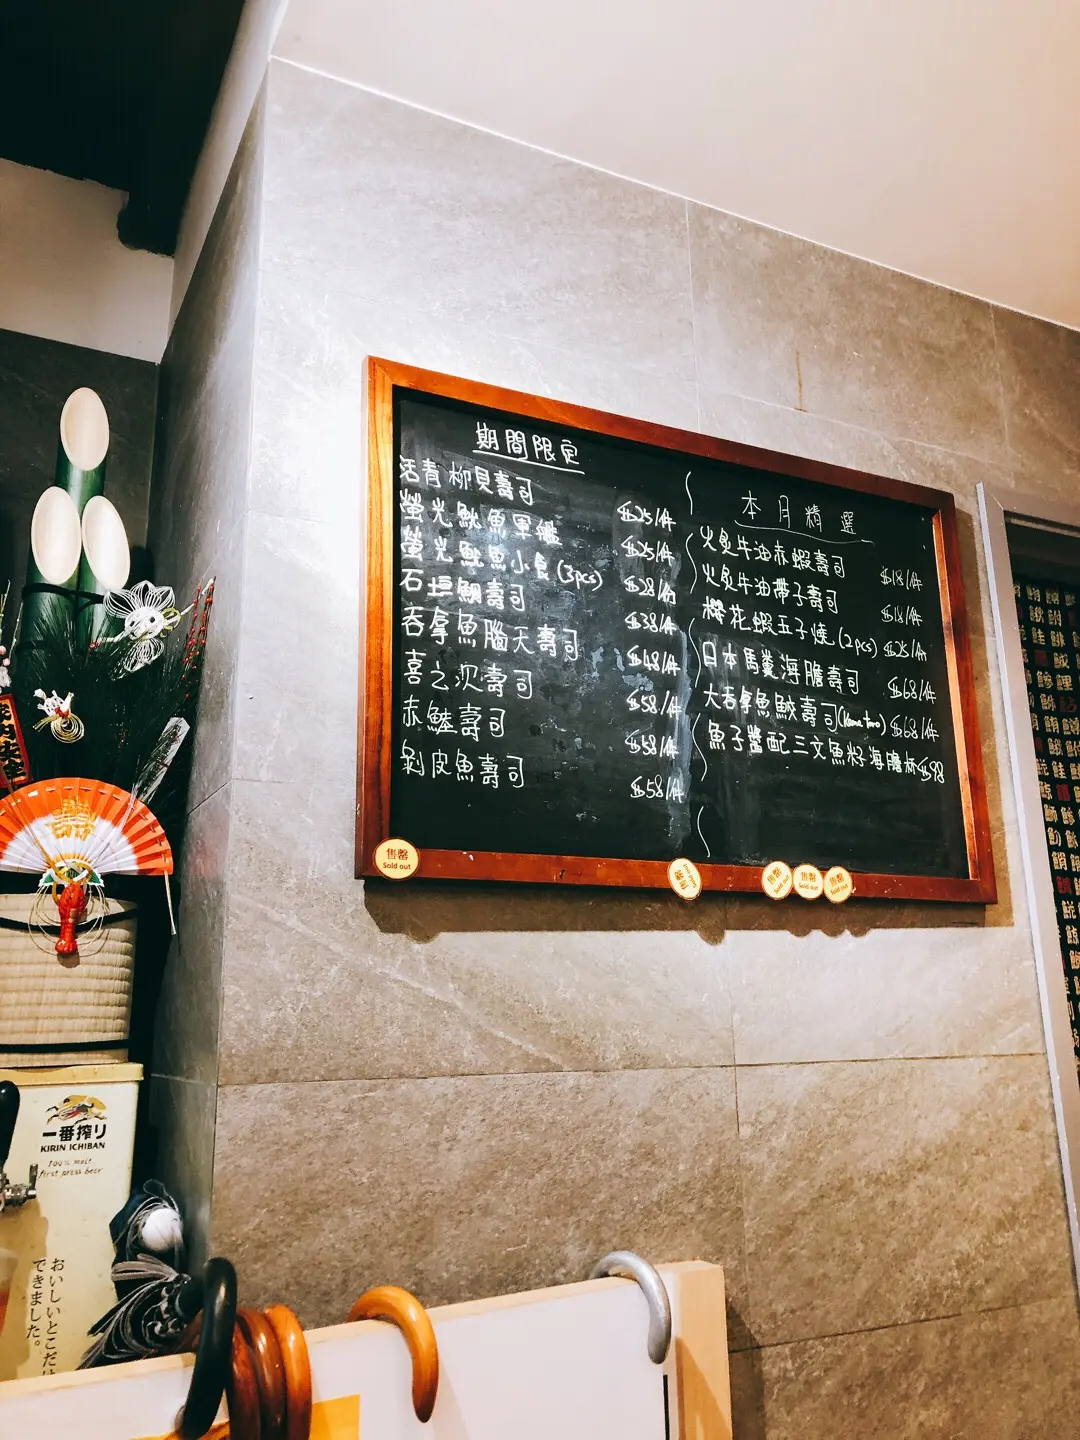 期間限定
活青柳貝壽司 $25/件
螢光魷魚軍艦 $25/件
螢光魷魚小食(3pcs) $28/份
石垣鯛壽司 $38/件
吞拿魚腦天壽司 $48/件
喜之次壽司 $58/件
赤鯥壽司 $58/件
剝皮魚壽司 $58/件
本月精選
火炙牛油赤蝦壽司 $18/件
火炙牛油帶子壽司 $18/件
櫻花蝦玉子燒(2pcs) $25/份
日本馬糞海膽壽司 $68/件
大吞拿魚鮫壽司(Kama toro) $68/件
魚子醬配三文魚籽海膽杯 $98
售罄
Sold out
售罄
Sold out
售罄
Sold out
售罄
Sold out
售罄
Sold out
壽
一番搾り
KIRIN ICHIBAN
100% malt
first press beer
おいしいとこだけ
できました。